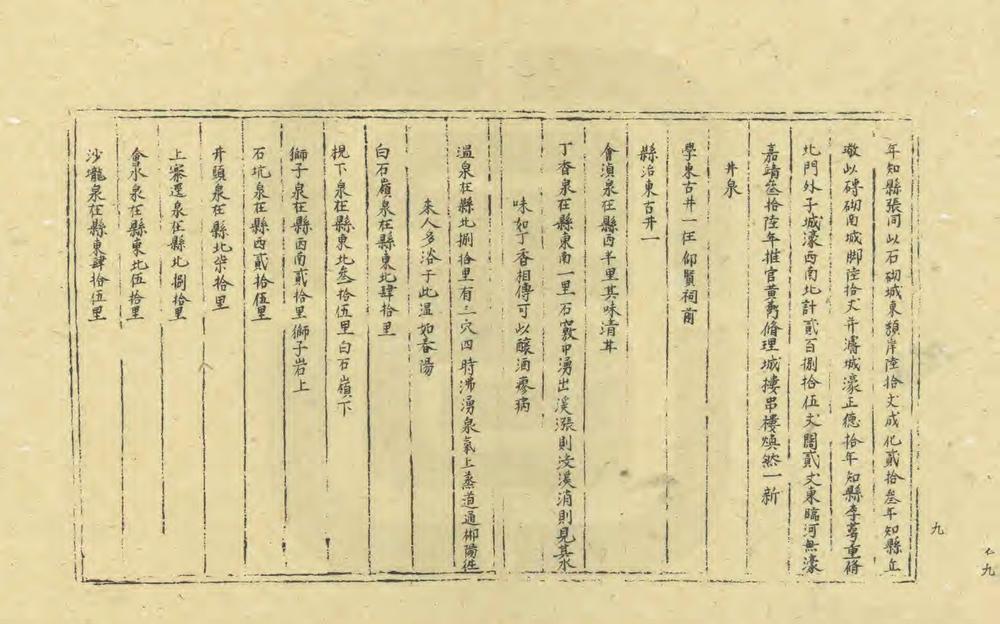 年知縣張同以石砌城東頹岸陸拾丈成化貳拾叁年知縣丘
璥以磚砌南城脚陸拾丈并濬城濠正德拾年知縣李萼重脩
北門外子城濠西南北計貳百捌拾伍丈闊貳丈東臨河無濠
嘉靖叁拾陸年推官黃勇脩理城樓串樓煥然一新
井泉
學東古井一在仰賢祠前
縣治東古井一
會湞泉在縣西半里其味清甘
丁香泉在縣東南一里石竅中湧出溪漲則没溪消則見其水
味如丁香相傳可以釀酒療病
溫泉在縣北捌拾里有三穴四時沸湧泉氣上蒸道通郴陽往
來人多浴于此溫如春湯
白石嶺泉在縣東北肆拾里
梘下泉在縣東北叁拾伍里白石嶺下
獅子泉在縣西南貳拾里獅子岩上
石坑泉在縣西貳拾伍里
井頭泉在縣北柒拾里
上寮逕泉在縣北捌拾里
會水泉在縣東北伍拾里
沙壠泉在縣東肆拾伍里
九
仁九